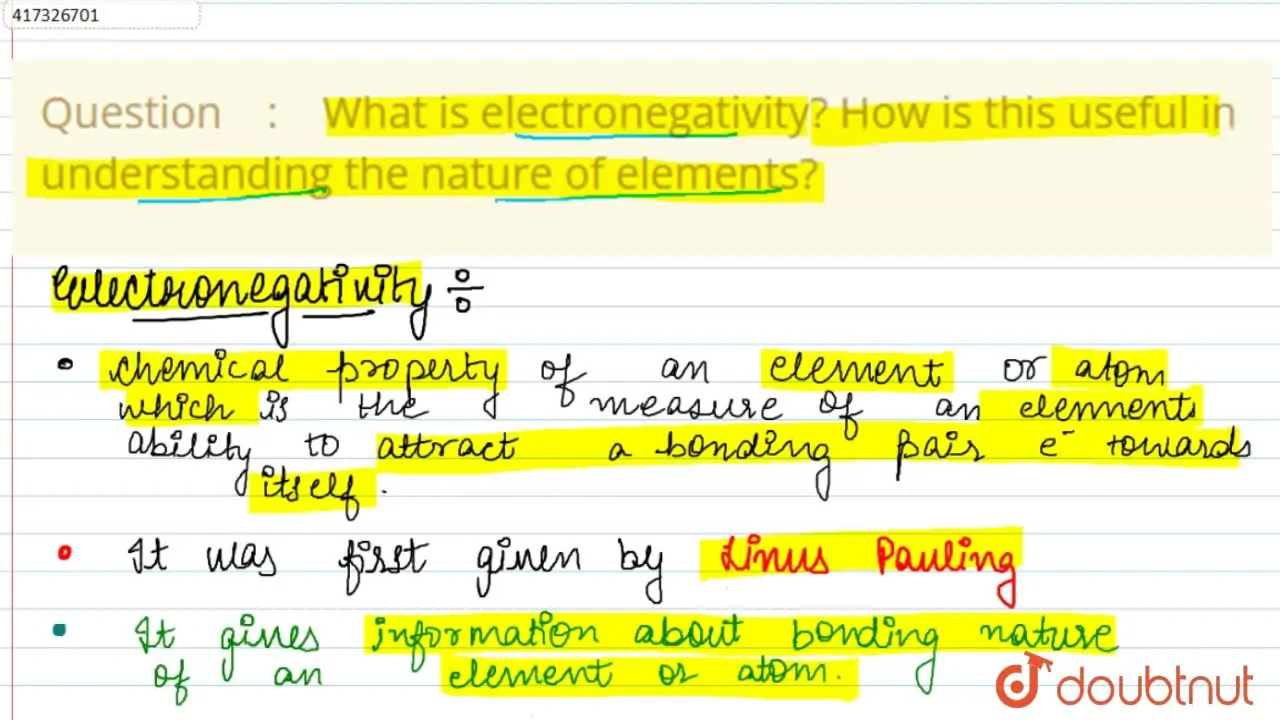 417326701
Question : What is electronegativity? How is this useful in
understanding the nature of elements?
Electronegativity ÷
• chemical property of an element or atom
which is the measure of an elements
ability to attract a bonding pair e⁻ towards
itself.
• It was first given by Linus Pauling
• It gives information about bonding nature
of an element or atom.
doubtnut